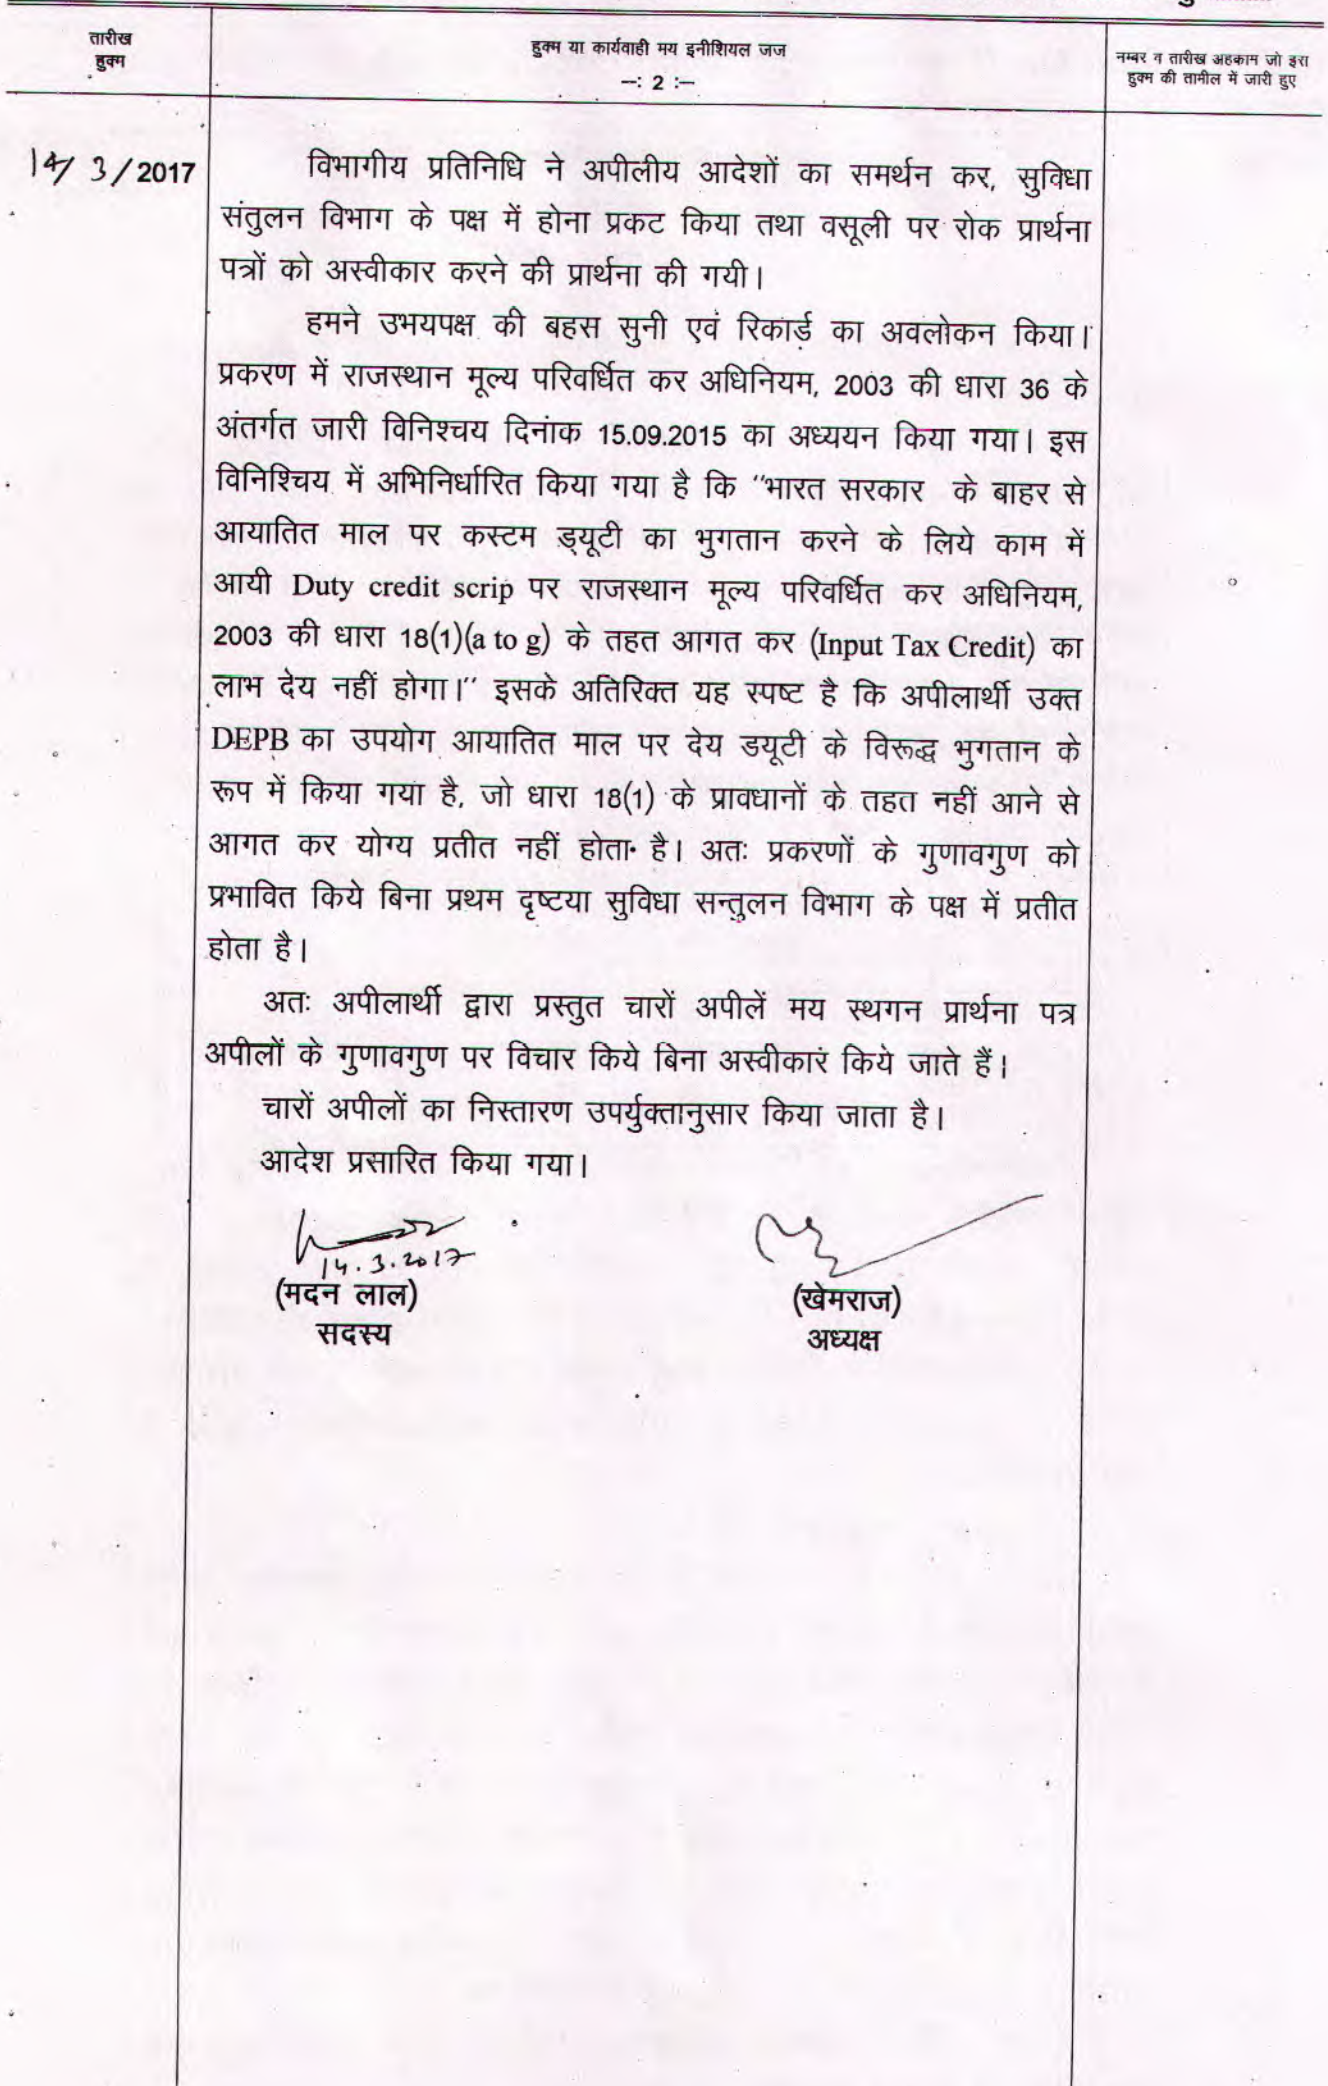 तारीख
हुक्म
हुक्म या कार्यवाही मय इनीशियल जज
--: 2 :--
नम्बर व तारीख अहकाम जो इस
हुक्म की तामील में जारी हुए
14/ 3 / 2017
विभागीय प्रतिनिधि ने अपीलीय आदेशों का समर्थन कर, सुविधा
संतुलन विभाग के पक्ष में होना प्रकट किया तथा वसूली पर रोक प्रार्थना
पत्रों को अस्वीकार करने की प्रार्थना की गयी।
हमने उभयपक्ष की बहस सुनी एवं रिकार्ड का अवलोकन किया।
प्रकरण में राजस्थान मूल्य परिवर्धित कर अधिनियम, 2003 की धारा 36 के
अंतर्गत जारी विनिश्चय दिनांक 15.09.2015 का अध्ययन किया गया। इस
विनिश्चिय में अभिनिर्धारित किया गया है कि ''भारत सरकार के बाहर से
आयातित माल पर कस्टम ड्यूटी का भुगतान करने के लिये काम में
आयी Duty credit scrip पर राजस्थान मूल्य परिवर्धित कर अधिनियम,
2003 की धारा 18(1)(a to g) के तहत आगत कर (Input Tax Credit) का
लाभ देय नहीं होगा।'' इसके अतिरिक्त यह स्पष्ट है कि अपीलार्थी उक्त
DEPB का उपयोग आयातित माल पर देय डयूटी के विरूद्ध भुगतान के
रूप में किया गया है, जो धारा 18(1) के प्रावधानों के तहत नहीं आने से
आगत कर योग्य प्रतीत नहीं होता है। अतः प्रकरणों के गुणावगुण को
प्रभावित किये बिना प्रथम दृष्टया सुविधा सन्तुलन विभाग के पक्ष में प्रतीत
होता है।
अतः अपीलार्थी द्वारा प्रस्तुत चारों अपीलें मय स्थगन प्रार्थना पत्र
अपीलों के गुणावगुण पर विचार किये बिना अस्वीकार किये जाते हैं।
चारों अपीलों का निस्तारण उपर्युक्तानुसार किया जाता है।
आदेश प्रसारित किया गया।
14.3.2017
(मदन लाल)
सदस्य
(खेमराज)
अध्यक्ष